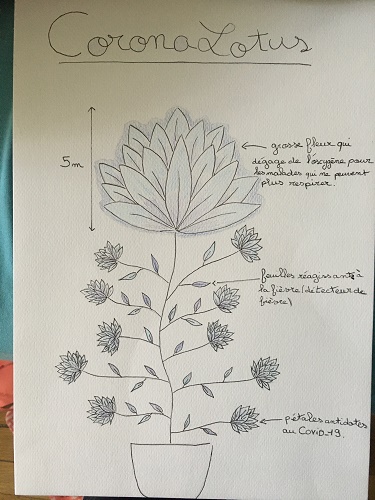 CoronaLotus
5m
grosse fleur qui
dégage de l'oxygène pour
les malades qui ne peuvent
plus respirer.
feuilles réagissant à
la fièvre (détecteur de
fièvre)
pétales antidotes
au COVID-19.